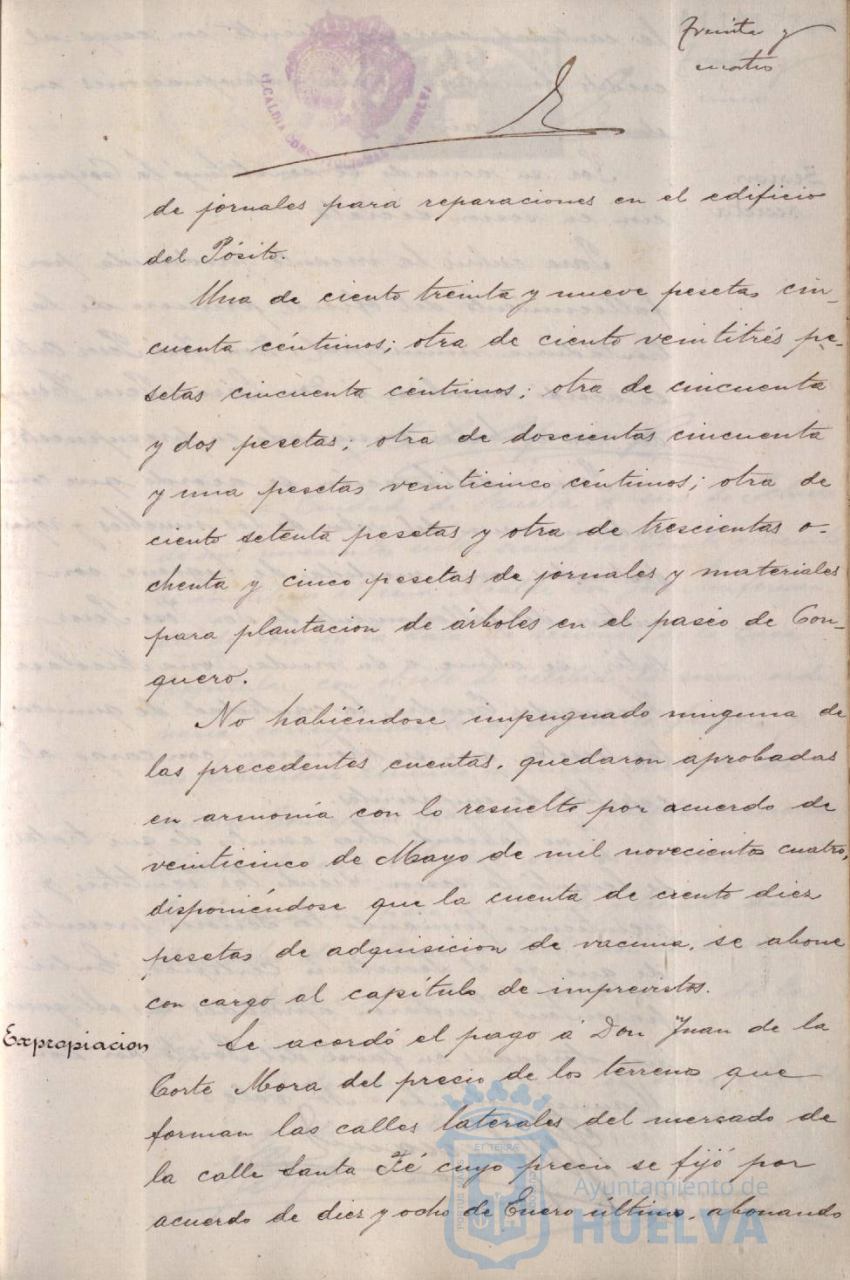 Treinta y
cuatro
ALCALDIA CONSTITUCIONAL DE HUELVA
de jornales para reparaciones en el edificio
del Pósito.
Una de ciento treinta y nueve pesetas cin-
cuenta céntimos; otra de ciento veintitrés pe-
setas cincuenta céntimos; otra de cincuenta
y dos pesetas; otra de doscientas cincuenta
y una pesetas veinticinco céntimos; otra de
ciento setenta pesetas y otra de trescientas o-
chenta y cinco pesetas de jornales y materiales
para plantacion de árboles en el paseo de Con-
quero.
No habiéndose impugnado ninguna de
las precedentes cuentas, quedaron aprobadas
en armonía con lo resuelto por acuerdo de
veinticinco de Mayo de mil novecientos cuatro,
disponiéndose que la cuenta de ciento diez
pesetas de adquisicion de vacuna, se abone
con cargo al capítulo de imprevistos.
Expropiacion
Se acordó el pago á Don Juan de la
Corte Mora del precio de los terrenos que
forman las calles laterales del mercado de
la calle Santa Fé cuyo precio se fijó por
acuerdo de diez y ocho de Enero último, abonando
Ayuntamiento de
HUELVA